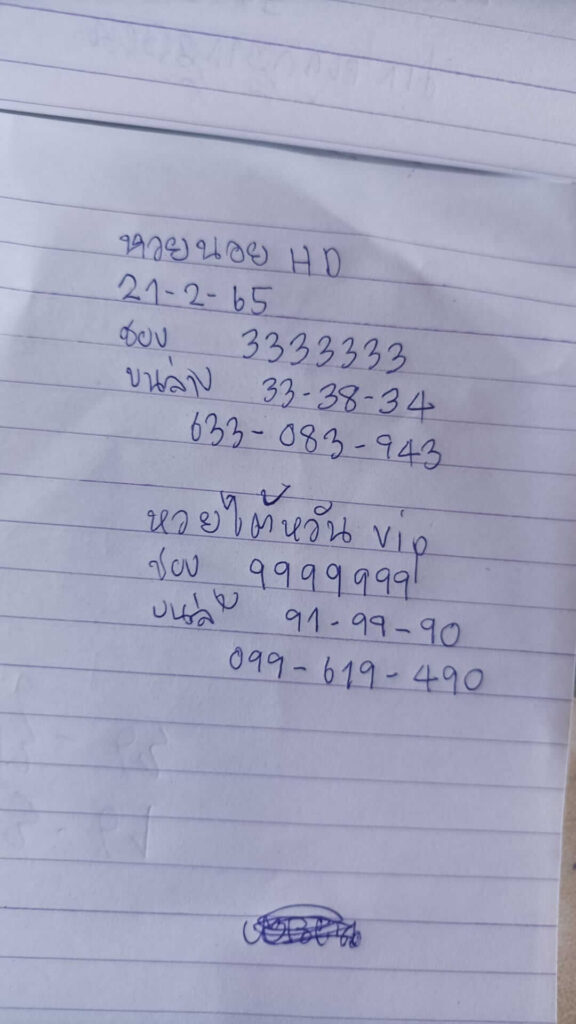 หวยนอย HD
21-2-65
ช่อง 3333333
บนล่าง 33-38-34
633-083-943
หวยใต้หวัน vip
ช่อง 9999999
บนล่าง 91-99-90
099-619-490